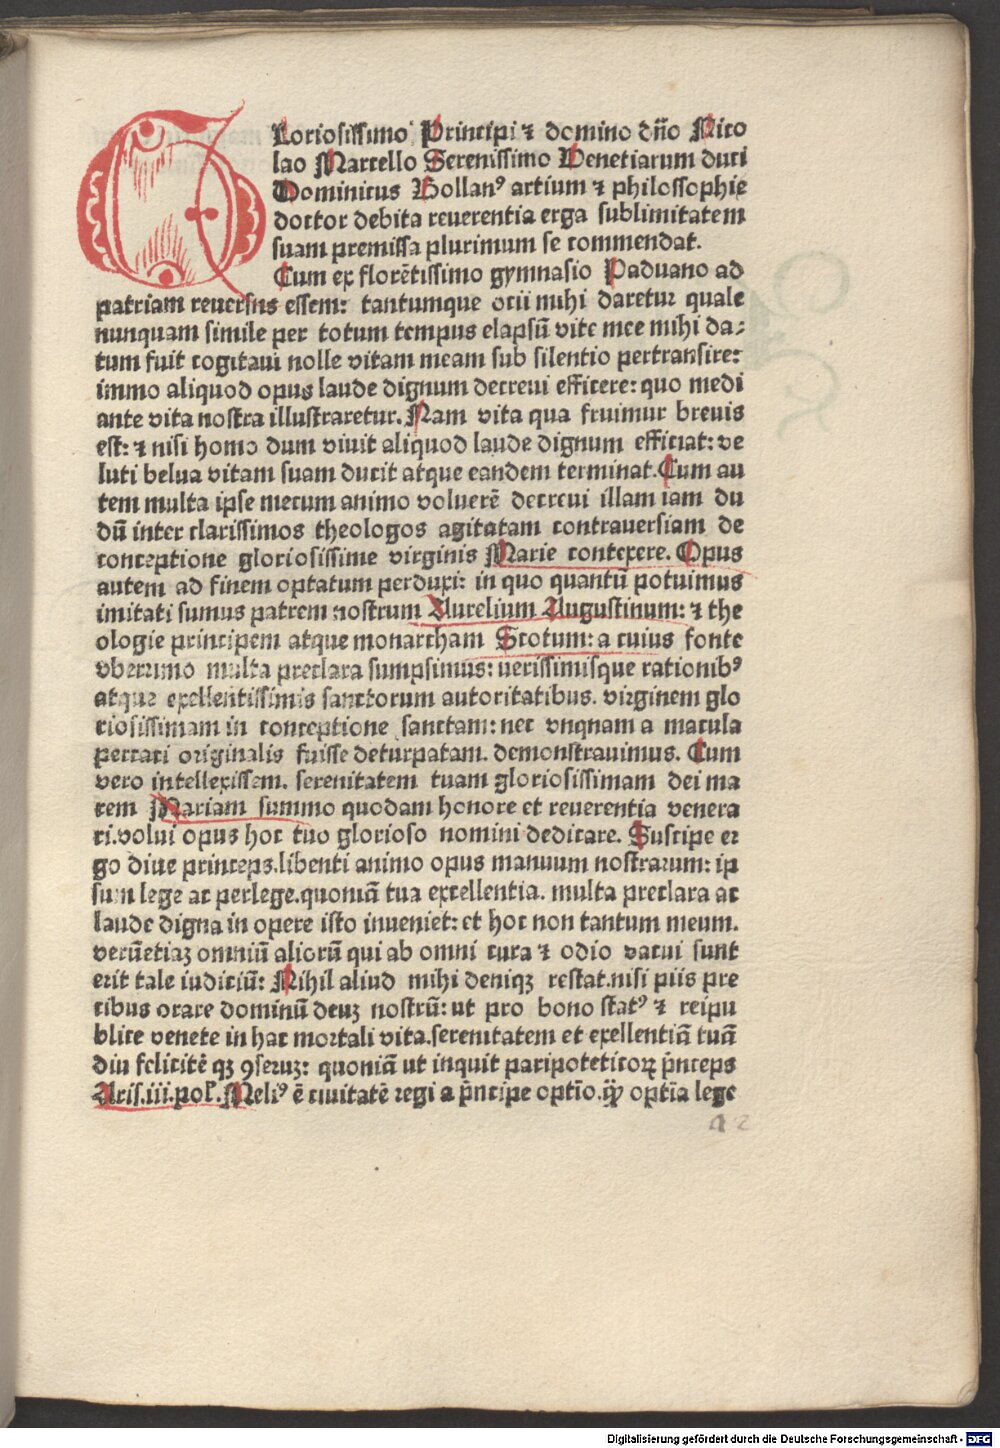 Gloriosissimo Principi ⁊ domino dño Nico
lao Marcello Serenissimo Venetiarum duci
Dominicus Bollanꝰ artium ⁊ philosophie
doctor debita reuerentia erga sublimitatem
suam premissa plurimum se commendat.
Cum ex florētissimo gymnasio Paduano ad
patriam reuersus essem: tantumque ocii mihi daretur quale
nunquam simile per totum tempus elapsū vite mee mihi da⸗
tum fuit cogitaui nolle vitam meam sub silentio pertransire:
immo aliquod opus laude dignum decreui efficere: quo medi
ante vita nostra illustraretur. Nam vita qua fruimur breuis
est: ⁊ nisi homo dum viuit aliquod laude dignum efficiat: ve
luti belua vitam suam ducit atque eandem terminat. Cum au
tem multa ipse mecum animo voluerē decreui illam iam du
dū inter clarissimos theologos agitatam contrauersiam de
conceptione gloriosissime virginis Marie contexere. Opus
autem ad finem optatum perduxi: in quo quantū potuimus
imitati sumus patrem nostrum Aurelium Augustinum: ⁊ the
ologie principem atque monarcham Scotum: a cuius fonte
vberrimo multa preclara sumpsimus: uerissimisque rationibꝰ
atque excellentissimis sanctorum autoritatibus. virginem glo
riosissimam in conceptione sanctam: nec vnqnam a macula
peccati originalis fuisse deturpatam. demonstrauimus. Cum
vero intellexissem. serenitatem tuam gloriosissimam dei ma
trem Mariam summo quodam honore et reuerentia venera
ri. volui opus hoc tuo glorioso nomini dedicare. Suscipe er
go diue princeps. libenti animo opus manuum nostrarum: ip
sum lege ac perlege. quoniā tua excellentia. multa preclara ac
laude digna in opere isto inueniet: et hoc non tantum meum.
verūetiaꝫ omniū aliorū qui ab omni cura ⁊ odio vacui sunt
erit tale iudiciū: Nihil aliud mihi deniqꝫ restat. nisi piis pre
cibus orare dominū deuꝫ nostrū: ut pro bono statꝰ ⁊ reipu
blice venete in hac mortali vita. serenitatem et excellentiā tuā
diu felicitē qꝫ ꝯseruꝫ: quoniā ut inquit paripoteticoꝝ p̄nceps
Aris. iii. pol. Meliꝰ ē ciuitatē regi a p̄ncipe optīo. qꝫ optīa lege
a 2
Digitalisierung gefördert durch die Deutsche Forschungsgemeinschaft - DFG